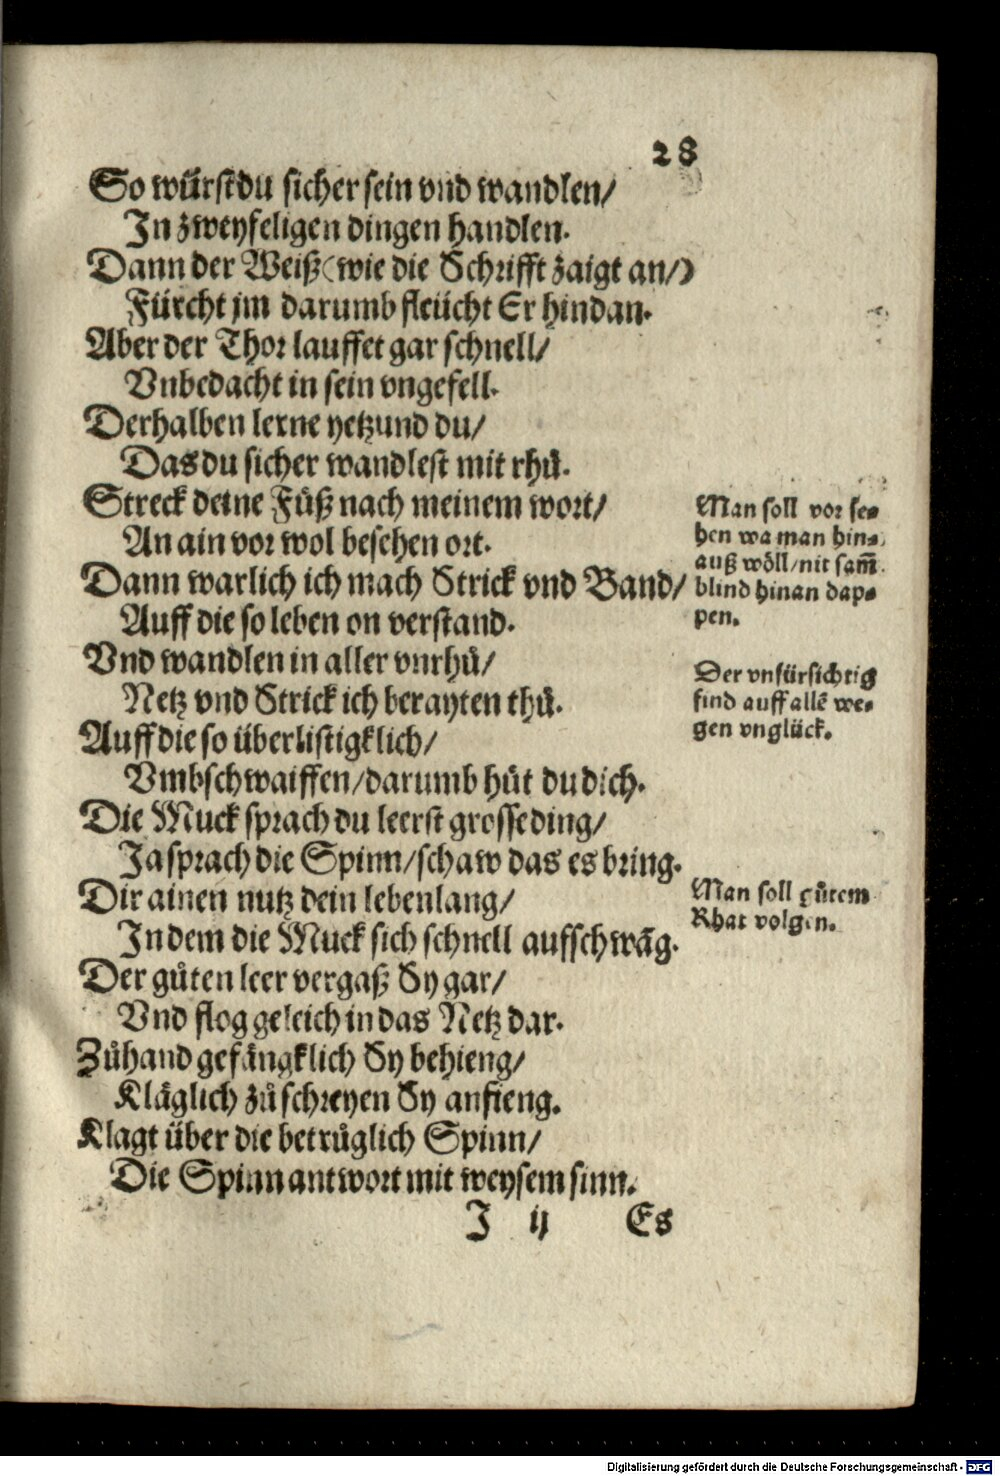 28
So würst du sicher sein vnd wandlen/
In zweyfeligen dingen handlen.
Dann der Weiß (wie die Schrifft zaigt an/)
Fürcht jm darumb fleücht Er hindan.
Aber der Thor lauffet gar schnell/
Vnbedacht in sein vngefell.
Derhalben lerne yetzund du/
Das du sicher wandlest mit rhů.
Streck deine Füß nach meinem wort/
An ain vor wol besehen ort.
Dann warlich ich mach Strick vnd Band/
Auff die so leben on verstand.
Vnd wandlen in aller vnrhů/
Netz vnd Strick ich berayten thů.
Auff die so überlistigklich/
Vmbschwaiffen/darumb hůt du dich.
Die Muck sprach du leerst grosse ding/
Ja sprach die Spinn/schaw das es bring.
Dir ainen nutz dein lebenlang/
In dem die Muck sich schnell auffschwāg.
Der gůten leer vergaß Sy gar/
Vnd flog geleich in das Netz dar.
Zůhand gefängklich Sy behieng/
Kläglich zů schreyen Sy anfieng.
Klagt über die betrüglich Spinn/
Die Spinn antwort mit weysem sinn.
J ij Es
Man soll vor se-
hen wa man hin-
auß wöll/nit sam̄
blind hinan dap-
pen.
Der vnfürsichtig
find auff allē we-
gen vnglück.
Man soll gůtem
Rhat volgen.
Digitalisierung gefördert durch die Deutsche Forschungsgemeinschaft - DFG